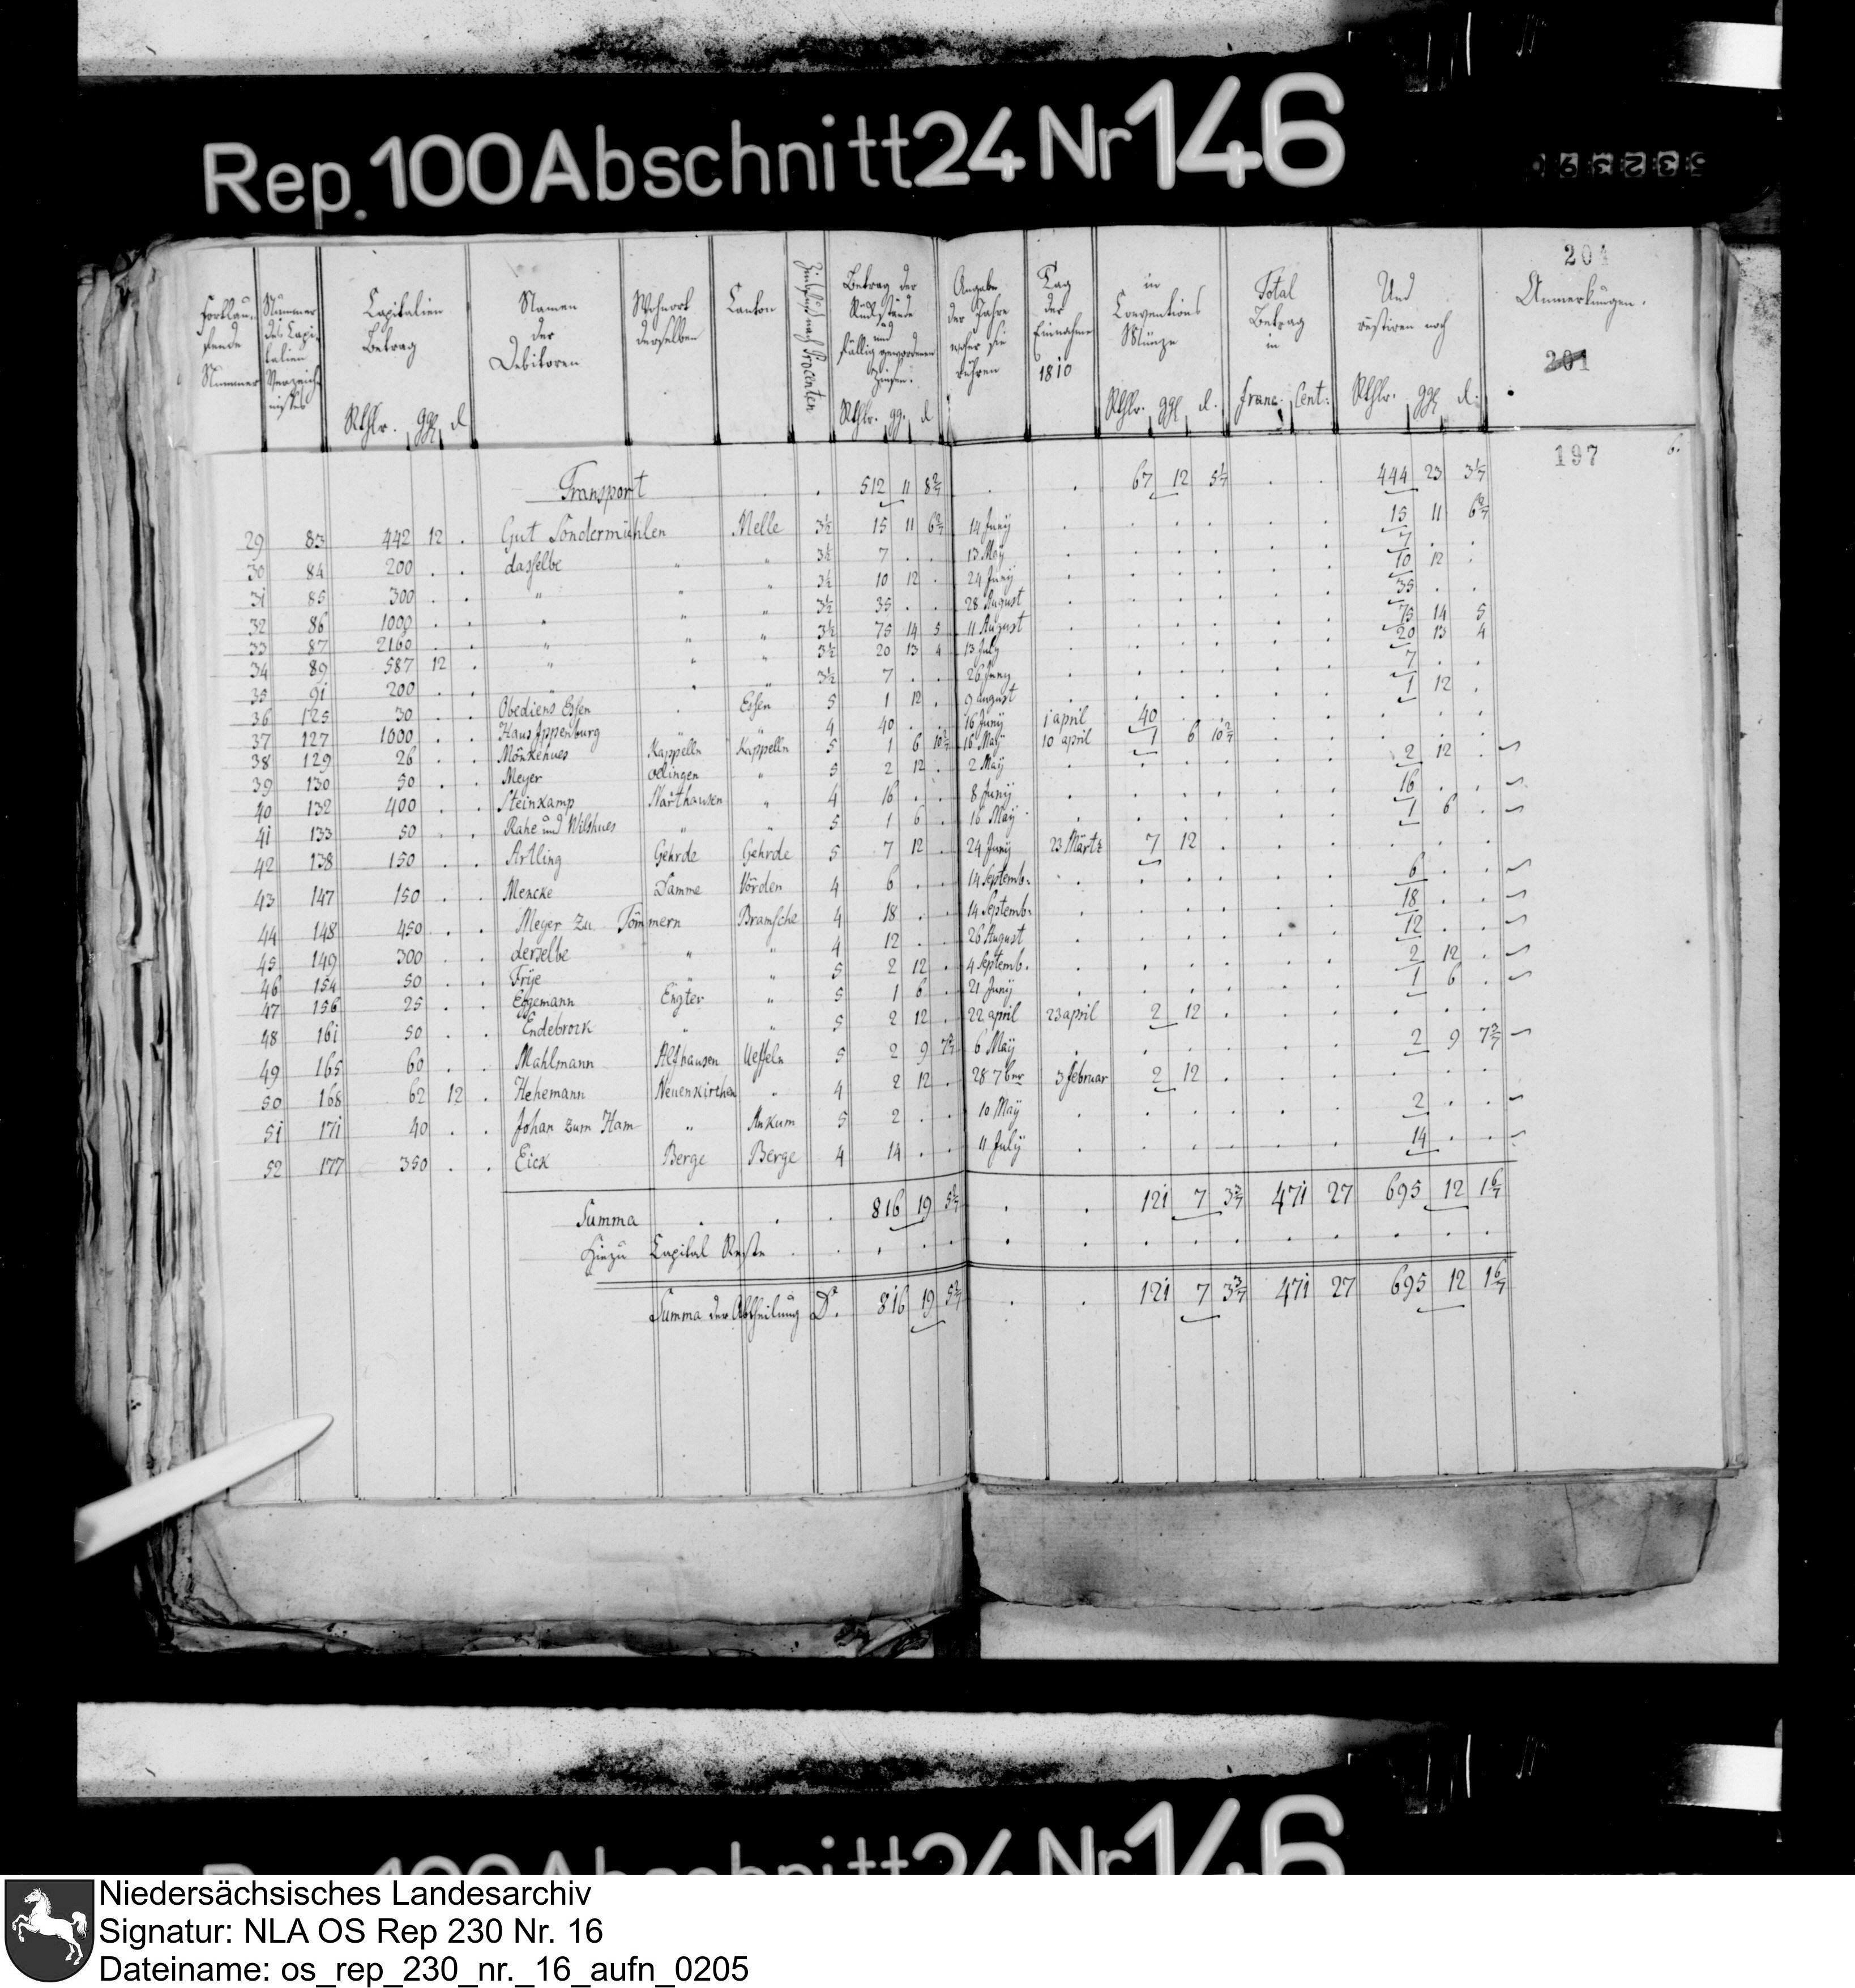 Rep. 100 Abschnitt 24 Nr 146
204
201
197
6.
Fortlaufende Nummer
Nummer des Capitalien Verzeichnisses
Capitalien Betrag
Rthlr. ggl d
Namen der Debitoren
Wohnort derselben
Canton
Zinsfuß nach Procenten
Betrag der Rückstände und fällig gewordenen Zinsen.
Rthlr. gg. d
Angabe der Jahre woher sie rühren
Tag der Einnahme 1810
in Conventions Münze
Rthlr. ggl d.
Total Betrag in
franc. Cent:
Und restiren noch
Rthlr. ggl d.
Anmerkungen.
Transport . . 512 11 8 2/7 . . 67 12 5 1/7 . . 444 23 3 1/7
29 83 442 12 . Gut Sondermühlen Melle 3½ 15 11 6 2/7 14 Junÿ . . . . . . 15 11 6 2/7
30 84 200 . . dasselbe " " 3½ 7 . . 13 Maÿ . . . . . . 7 . .
31 85 300 . . " " " 3½ 10 12 . 24 Junÿ . . . . . . 10 12 .
32 86 1000 . . " " " 3½ 35 . . 28 August . . . . . . 35 . .
33 87 2160 . . " " " 3½ 75 14 5 11 August . . . . . . 75 14 5
34 89 587 12 . " " " 3½ 20 13 4 13 July . . . . . . 20 13 4
35 91 200 . . " " " 3½ 7 . . 26 Juny . . . . . . 7 . .
36 125 30 . . Obediens Essen . Essen 5 1 12 . 9 august . . . . . . 1 12 .
37 127 1000 . . Haus Ippenburg " " 4 40 . . 16 Junÿ 1 april 40 . . . . . . .
38 129 26 . . Mönkehues Kappelln Kappelln 5 1 6 10 2/7 16 Maÿ 10 april 1 6 10 2/7 . . . . .
39 130 50 . . Meyer oelingen " 5 2 12 . 2 Maÿ . . . . . . 2 12 .
40 132 400 . . Steinkamp Harthausen " 4 16 . . 8 Junÿ . . . . . . 16 . .
41 133 50 . . Rahe und Wilshues " " 5 1 6 . 16 Maÿ . . . . . . 1 6 .
42 138 150 . . Artling Gehrde Gehrde 5 7 12 . 24 Junÿ 23 Märtz 7 12 . . . . . .
43 147 150 . . Mencke Damme Vörden 4 6 . . 14 Septemb. . . . . . . 6 . .
44 148 450 . . Meyer zu Tömmern Bramsche 4 18 . . 14 Septemb. . . . . . . 18 . .
45 149 300 . . derselbe " " 4 12 . . 26 August . . . . . . 12 . .
46 154 50 . . Frÿe " " 5 2 12 . 4 Septemb. . . . . . . 2 12 .
47 156 25 . . Eggemann Engter " 5 1 6 . 21 Junÿ . . . . . . 1 6 .
48 161 50 . . Endebrock " " 5 2 12 . 22 april 23 april 2 12 . . . . . .
49 165 60 . . Mahlmann Alfhausen Ueffeln 5 2 9 7 2/7 6 Maÿ . . . . . . 2 9 7 2/7
50 168 62 12 . Hehemann Neuenkirchen " 4 2 12 . 28 7br 3 februar 2 12 . . . . . .
51 171 40 . . Johan zum Ham " Ankum 5 2 . . 10 Maÿ . . . . . . 2 . .
52 177 350 . . Eick Berge Berge 4 14 . . 11 Julÿ . . . . . . 14 . .
Summa . . . 816 19 5 2/7 . . 121 7 3 3/7 471 27 695 12 1 6/7
Hiezu Capital Reste . . . . . . . . . . . . . .
Summa der Abtheilung D. 816 19 5 2/7 . . 121 7 3 3/7 471 27 695 12 1 6/7
Niedersächsisches Landesarchiv
Signatur: NLA OS Rep 230 Nr. 16
Dateiname: os_rep_230_nr._16_aufn_0205